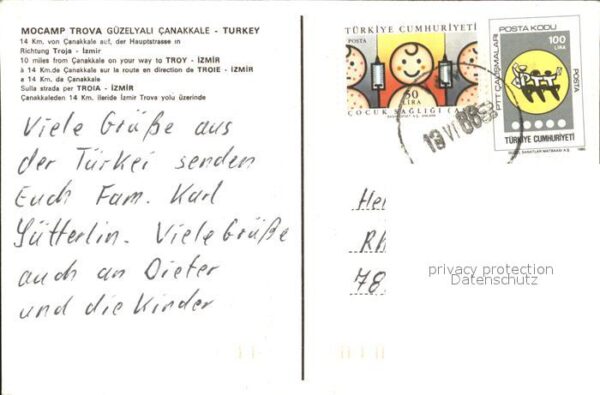 MOCAMP TROVA GÜZELYALI ÇANAKKALE - TURKEY
14 Km. von Çanakkale auf, der Hauptstrasse in
Richtung Troja - İzmir
10 miles from Çanakkale on your way to TROY - İZMİR
à 14 Km.de Çanakkale sur la route en direction de TROIE - İZMİR
a 14 Km. de Çanakkale
Sulla strada per TROIA - İZMİR
Çanakkaleden 14 Km. ileride İzmir Trova yolu üzerinde
Viele Grüße aus
der Türkei senden
Euch Fam. Karl
Sütterlin. Viele Grüße
auch an Dieter
und die Kinder
TÜRKİYE CUMHURİYETİ
POSTA
50
LİRA
ÇOCUK SAĞLIĞI
13 VI 88
POSTA KODU
100
LİRA
PTT ÇALIŞMALARI
PTT
POSTA
TÜRKİYE CUMHURİYETİ
He
Rh
78
privacy protection
Datenschutz